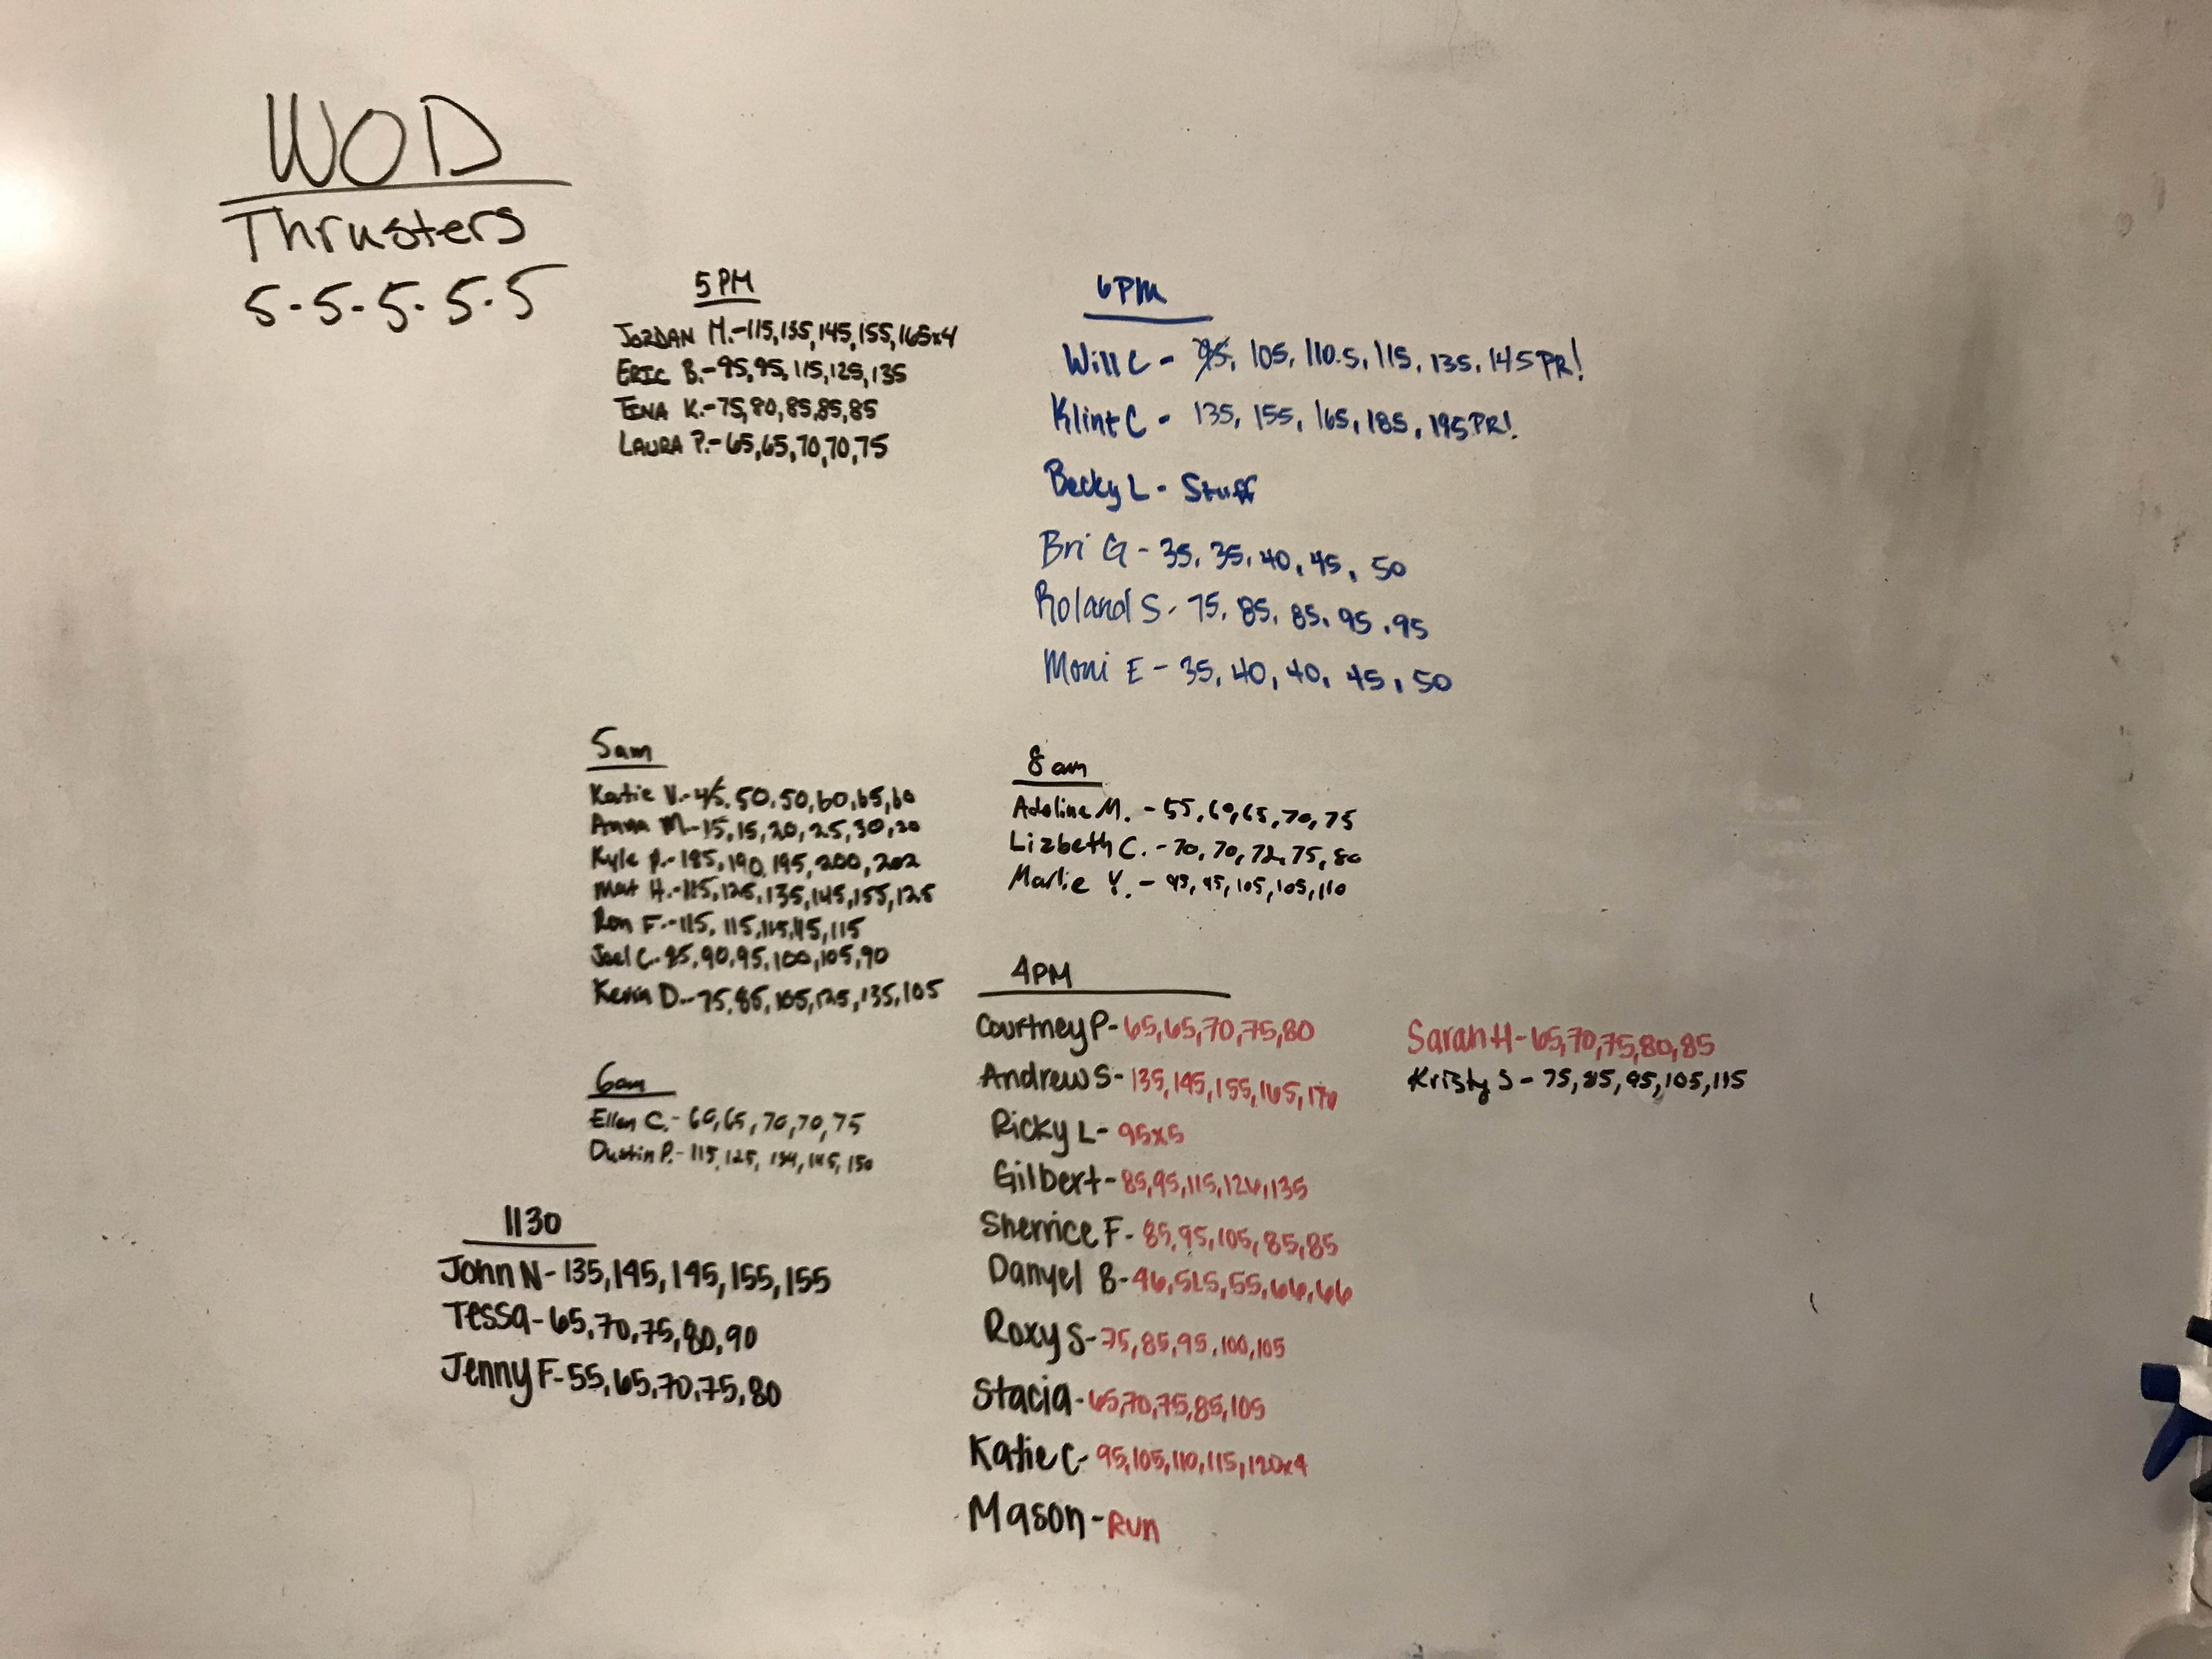 WOD
Thrusters
5-5-5-5-5
5 PM
JORDAN M.-115,135,145,155,165x4
ERIC B.-95,95,115,125,135
TINA K.-75,80,85,85,85
LAURA P.-65,65,70,70,75
6PM
Will C - 95, 105, 110.5, 115, 135, 145 PR!
Klint C - 135, 155, 165, 185, 195 PR!
Becky L - Stuff
Bri G - 35, 35, 40, 45, 50
Roland S - 75, 85, 85, 95, 95
Moni E - 35, 40, 40, 45, 50
5am
Katie V.-45,50,50,60,65,60
Anna M.-15,15,20,25,30,20
Kyle P.-185,190,195,200,202
Matt H.-115,125,135,145,155,125
Ron F.-115,115,115,115,115
Joel C-85,90,95,100,105,90
Kevin D.-75,85,105,125,135,105
8 am
Adeline M. - 55,60,65,70,75
Lizbeth C. - 70,70,72,75,80
Marlie Y. - 95,95,105,105,110
6am
Ellen C.- 60,65,70,70,75
Dustin P.- 115,125,134,145,150
1130
John N-135,145,145,155,155
Tessa-65,70,75,80,90
Jenny F-55,65,70,75,80
4PM
Courtney P-65,65,70,75,80
Andrew S-135,145,155,165,170
Ricky L-95x5
Gilbert-85,95,115,126,135
Sherrice F-85,95,105,85,85
Danyel B-46,52.5,55,66,66
Roxy S-75,85,95,100,105
Stacia-65,70,75,85,105
Katie C-95,105,110,115,120x4
Mason-Run
Sarah H-65,70,75,80,85
Kristy S - 75,85,95,105,115